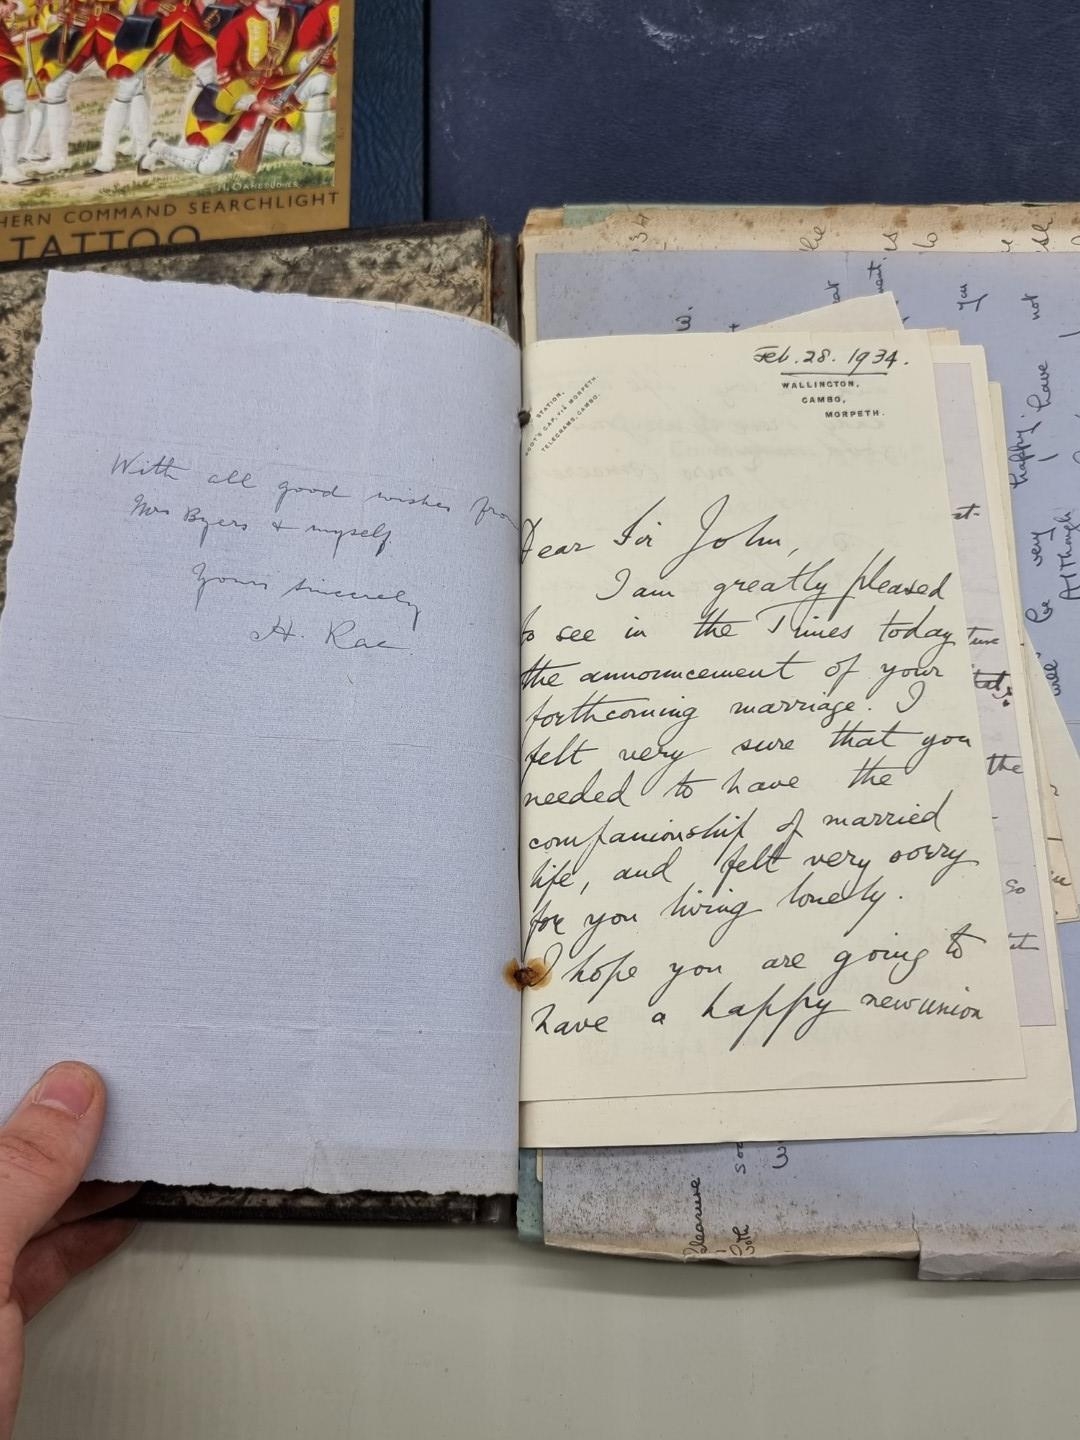 HERN COMMAND SEARCHLIGHT
TATTOO
With all good wishes from
Mrs Byers & myself.
Yours sincerely
H. Rae
Feb. 28. 1934.
WALLINGTON,
CAMBO,
MORPETH.
STATION,
SCOT'S GAP, VIA MORPETH.
TELEGRAMS, CAMBO.
Dear Sir John,
I am greatly pleased
to see in the Times today
the announcement of your
forthcoming marriage. I
felt very sure that you
needed to have the
companionship of married
life, and felt very sorry
for you living lonely.
I hope you are going to
have a happy new union
the
so
not
have
happy.
very
be
will
Although
Pleasure